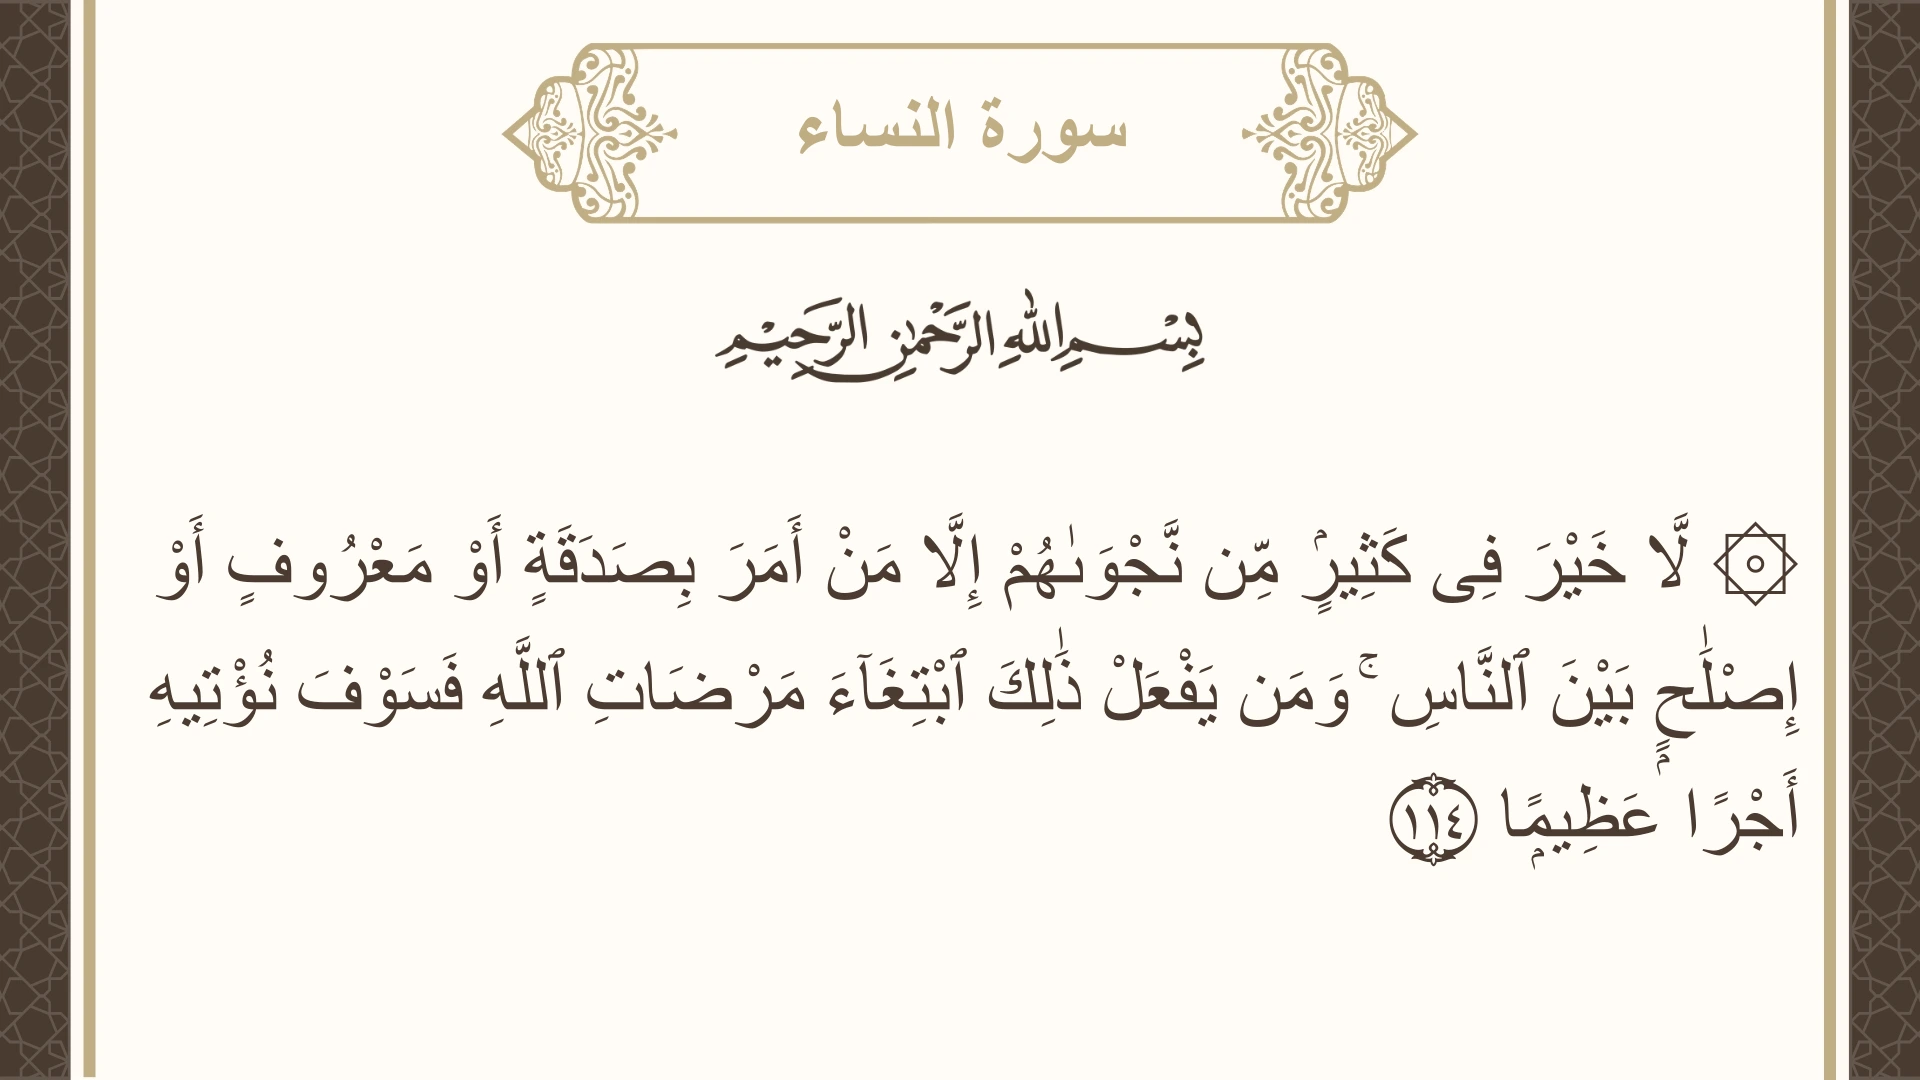 سورة النساء
بِسْمِ اللهِ الرَّحْمٰنِ الرَّحِيْمِ
۞ لَّا خَيْرَ فِى كَثِيرٍۢ مِّن نَّجْوَىٰهُمْ إِلَّا مَنْ أَمَرَ بِصَدَقَةٍ أَوْ مَعْرُوفٍ أَوْ
إِصْلَٰحٍۭ بَيْنَ ٱلنَّاسِ ۚ وَمَن يَفْعَلْ ذَٰلِكَ ٱبْتِغَآءَ مَرْضَاتِ ٱللَّهِ فَسَوْفَ نُؤْتِيهِ
أَجْرًا عَظِيمًۭا ١١٤